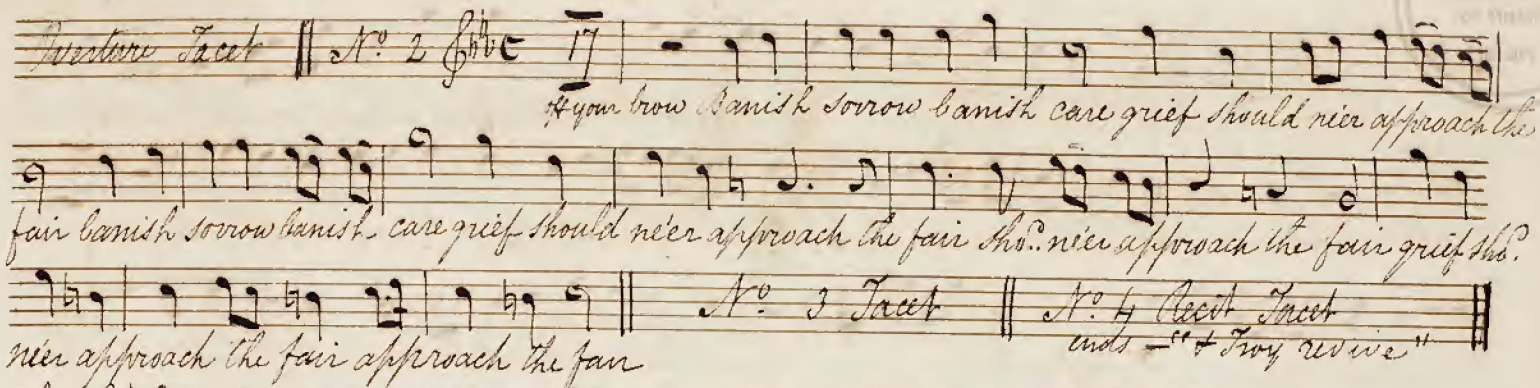 Overture Tacet No 2 17
off your brow Banish sorrow banish care grief should ne'er approach the
fair banish sorrow banish care grief should ne'er approach the fair sho.d ne'er approach the fair grief sho.d
ne'er approach the fair approach the fair
No 3 Tacet No 4 Recit Tacet
ends - "& Troy revive"